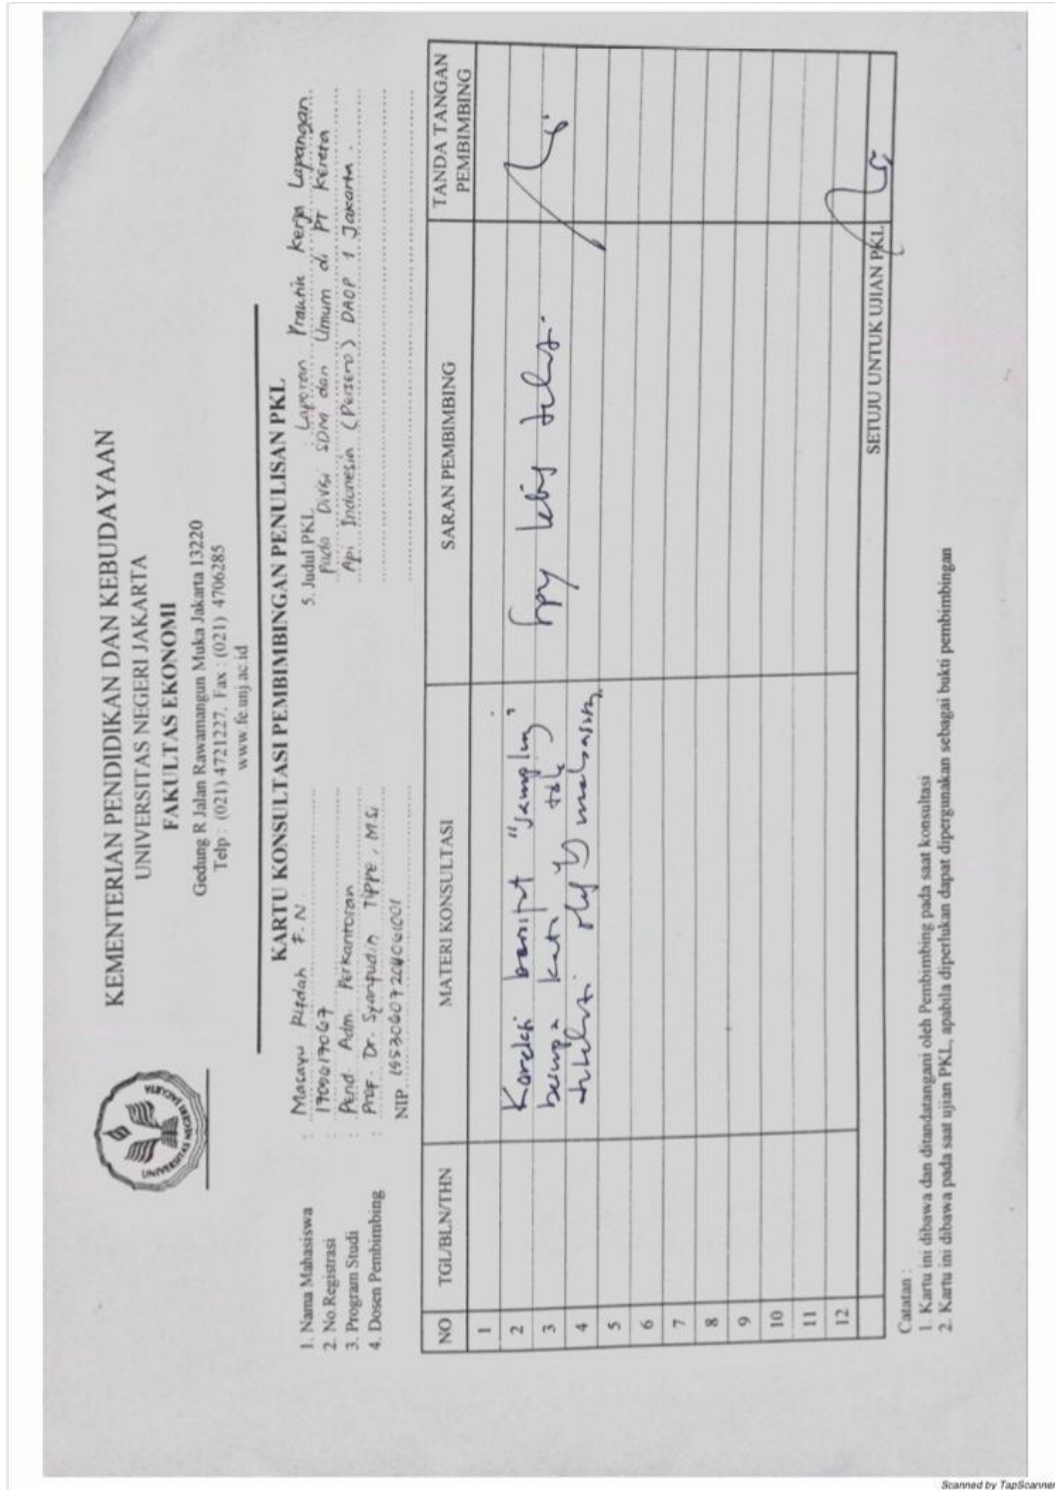 KEMENTERIAN PENDIDIKAN DAN KEBUDAYAAN
UNIVERSITAS NEGERI JAKARTA
FAKULTAS EKONOMI
Gedung R Jalan Rawamangun Muka Jakarta 13220
Telp : (021) 4721227, Fax : (021) 4706285
www.fe.unj.ac.id
KARTU KONSULTASI PEMBIMBINGAN PENULISAN PKL
1. Nama Mahasiswa : Masayu Rifdah F. N
2. No.Registrasi : 1709617067
3. Program Studi : Pend. Adm. Perkantoran
4. Dosen Pembimbing : Prof. Dr. Syarifudin Tippe, M.Si
NIP
5. Judul PKL : Laporan Praktik Kerja Lapangan
Pada Divisi SDM dan Umum di PT Kereta
Api Indonesia (Persero) DAOP 1 Jakarta.
NO TGL/BLN/THN MATERI KONSULTASI SARAN PEMBIMBING TANDA TANGAN PEMBIMBING
1
2 Koreksi bersifat "sampling" lebih teliti.
3 berupa kata yg tdk
4 oleh mahasiswa
5
6
7
8
9
10
11
12
SETUJU UNTUK UJIAN PKL
Catatan :
1. Kartu ini dibawa dan ditandatangani oleh Pembimbing pada saat konsultasi
2. Kartu ini dibawa pada saat ujian PKL, apabila diperlukan dapat dipergunakan sebagai bukti pembimbingan
Scanned by TapScanner